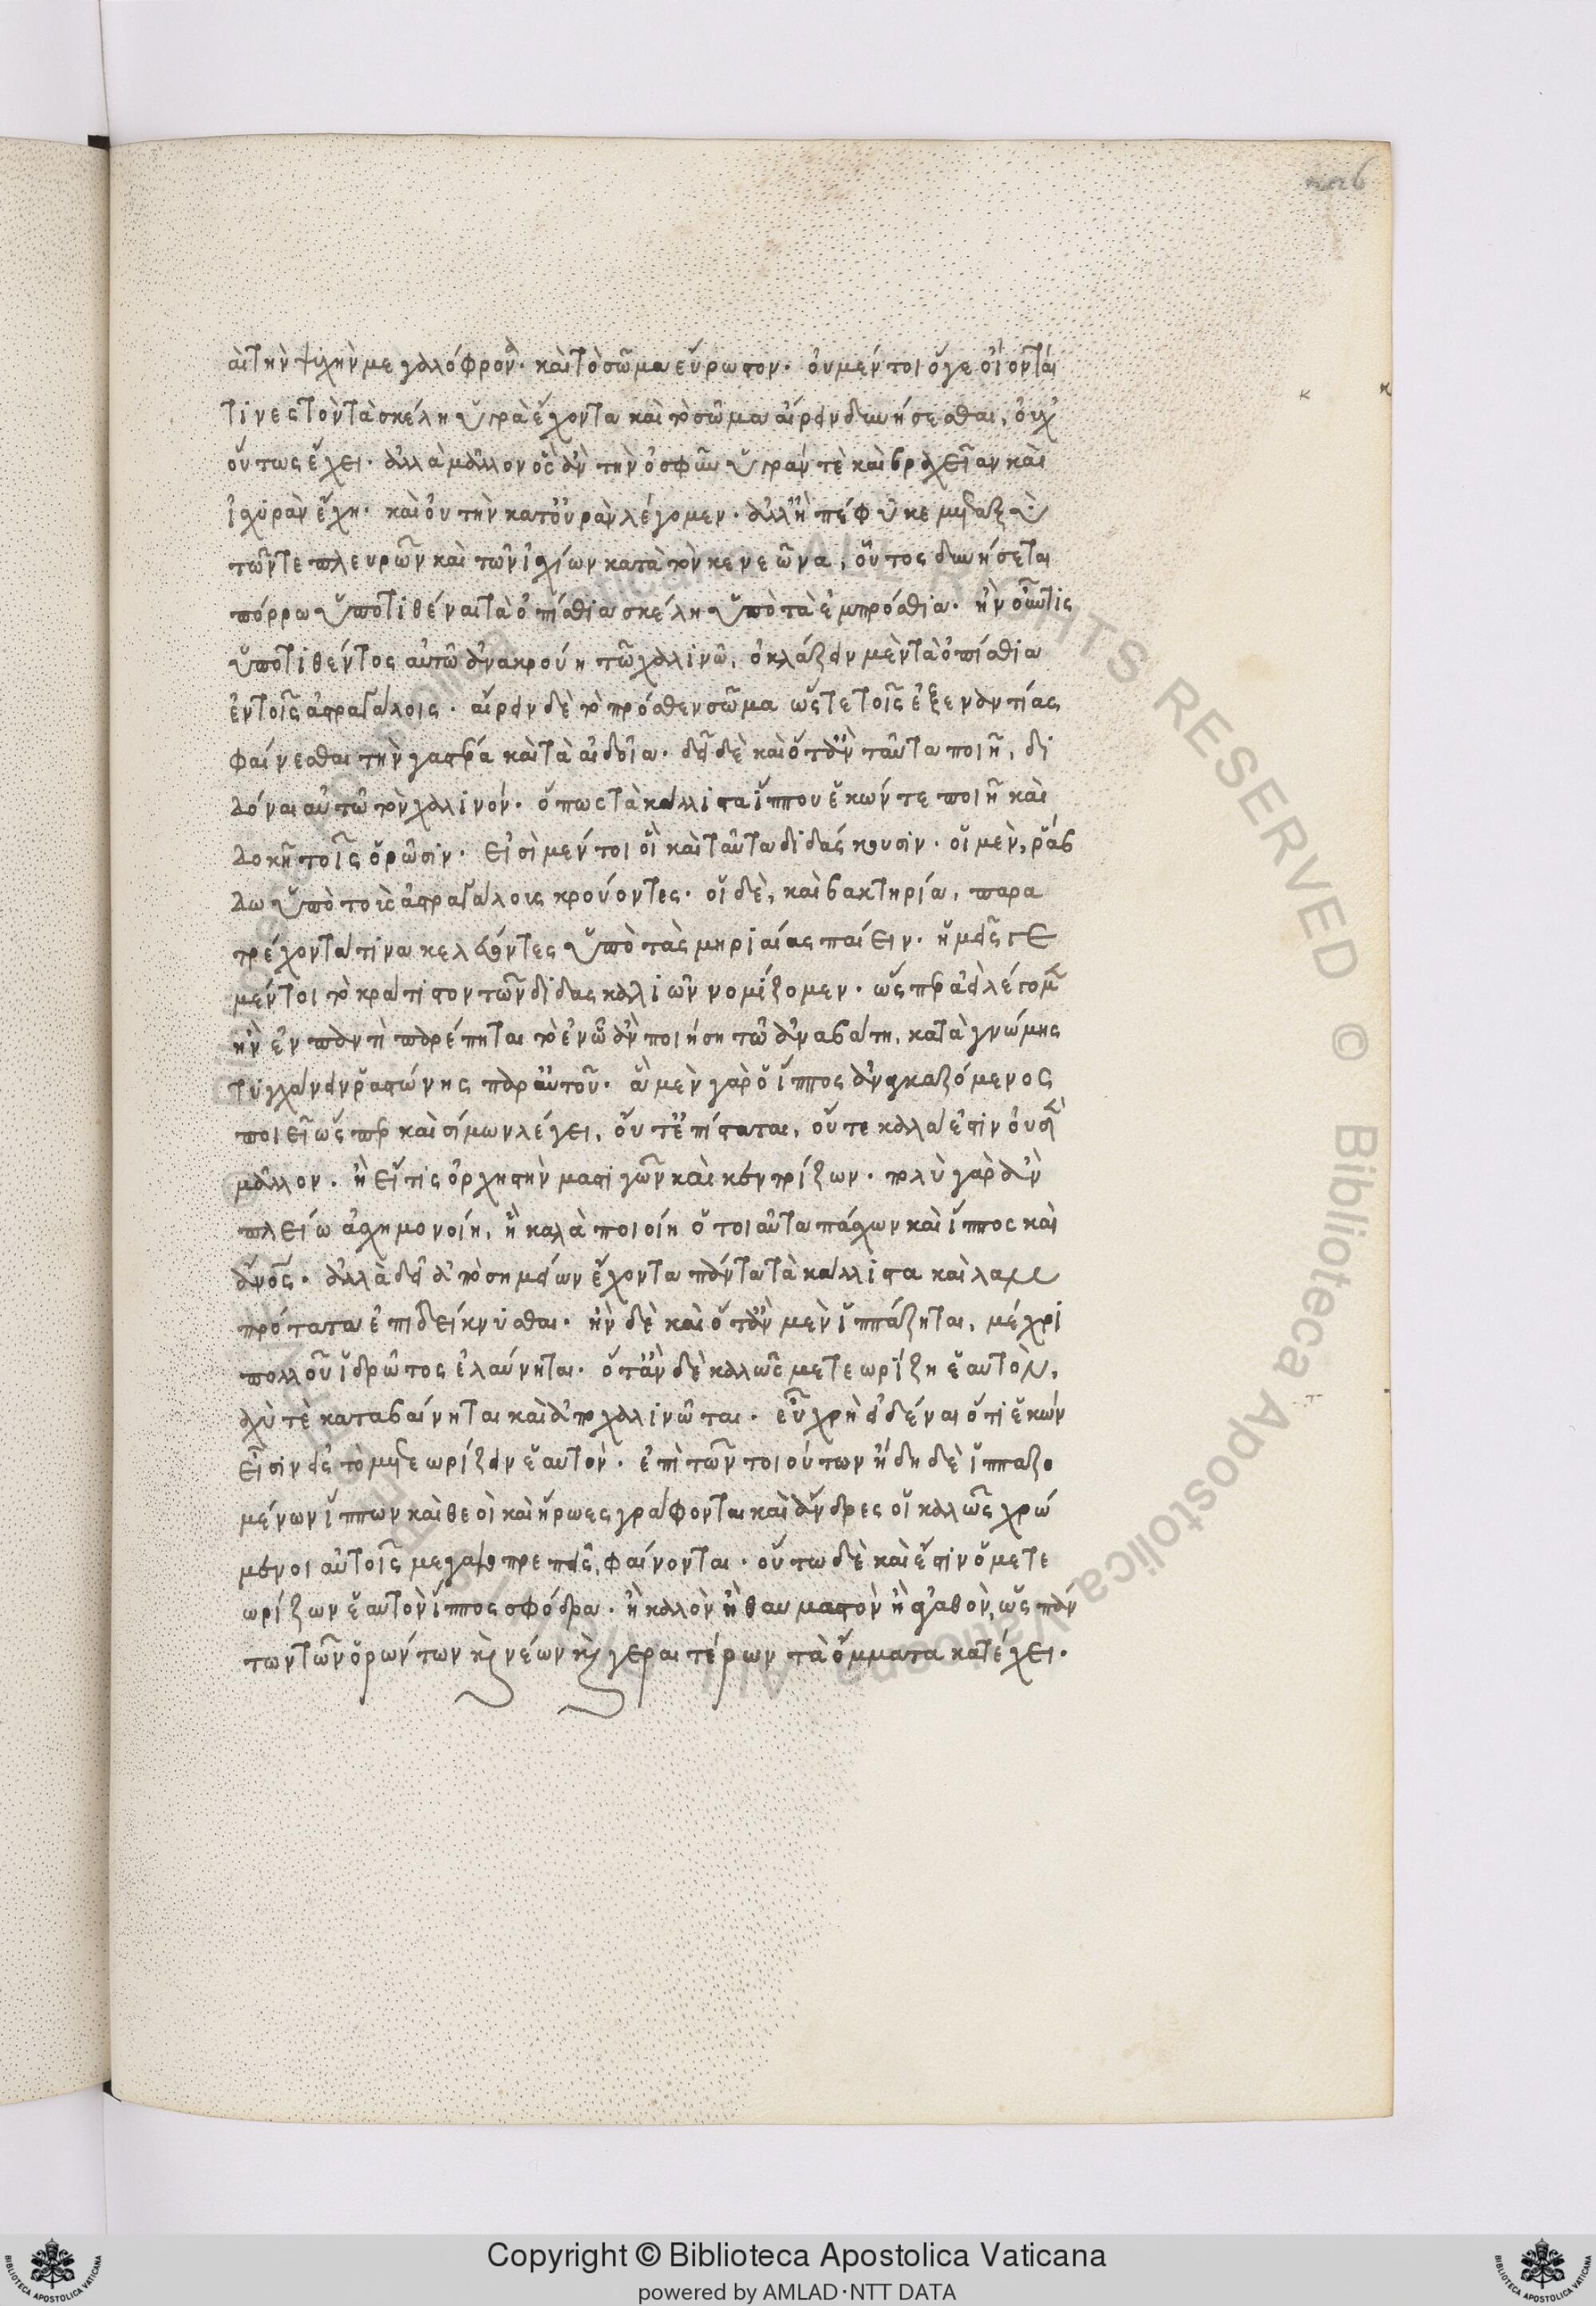 αι την ψυχὴν μεγαλόφρονα. καὶ τὸ σῶμα εὔρωστον. οὐ μέντοι ὅ γε οἴονταί
τινες τὸν τὰ σκέλη ὑγρὰ ἔχοντα καὶ τὸ σῶμα αἴρειν δυνήσεσθαι, οὐχ
οὕτως ἔχει. ἀλλὰ μᾶλλον ὃς ἂν τὴν ὀσφῦν ὑγράν τὲ καὶ βραχεῖαν καὶ
ἰσχυρὰν ἔχη. καὶ οὐ τὴν κατ' οὐρὰν λέγομεν. ἀλλ' ἣ πέφυκε μεταξὺ
τῶν τε πλευρῶν καὶ τῶν ἰσχίων κατὰ τὸν κενεῶνα, οὗτος δυνήσεται
πόρρω ὑποτιθέναι τὰ ὀπίσθια σκέλη ὑπὸ τὰ ἐμπρόσθια. ἢν οὖν τις
ὑποτιθέντος αὐτῶ ἀνακρούη τῶ χαλινῶ, ὀκλάζειν μὲν τὰ ὀπίσθια
ἐν τοῖς ἀστραγάλοις. αἴρειν δὲ τὸ πρόσθεν σῶμα ὥστε τοῖς ἐξεναντίας
φαίνεσθαι τὴν γαστέρα καὶ τὰ αἰδοῖα. δεῖ δὲ καὶ ὅταν ταῦτα ποιῆ, δι
δόναι αὐτῶ τὸν χαλινόν. ὅπως τὰ κάλλιστα ἵππου ἑκών τε ποιῆ καὶ
δοκῆ τοῖς ὁρῶσιν. εἰσὶ μέντοι οἳ καὶ ταῦτα διδάσκουσιν. οἱ μὲν, ῥάβ
δω ὑπὸ τοὺς ἀστραγάλους κρούοντες. οἱ δὲ, καὶ βακτηρία, παρα
τρέχοντά τινα κελεύοντες ὑπὸ τὰς μηριαίας παίειν. ἡμεῖς γε
μέντοι τὸ κράτιστον τῶν διδασκαλιῶν νομίζομεν. ὥσπερ ἀεὶ λέγομεν
ἢν ἐν παντὶ παρέπηται τὸ ἐν ᾧ ἂν ποιήση τῶ ἀναβάτη, κατὰ γνώμης
τυγχάνειν ῥαστώνης παρ' αὐτοῦ. ἃ μὲν γὰρ ὁ ἵππος ἀναγκαζόμενος
ποιεῖ ὥσπερ καὶ σίμων λέγει, οὔτ' ἐπίσταται, οὔτε καλά ἐστιν οὐδὲν
μᾶλλον. ἢ εἴ τις ὀρχηστὴν μαστιγῶν καὶ κεντρίζων. πολὺ γὰρ ἂν
πλείω ἀσχημονοίη, ἢ καλὰ ποιοίη ὁ τοιαῦτα πάσχων καὶ ἵππος καὶ
ἄνος. ἀλλὰ δεῖ ἀπὸ σημείων ἔχοντα πάντα τὰ κάλλιστα καὶ λαμ
πρότατα ἐπιδείκνυσθαι. ἢν δὲ καὶ ὅταν μὲν ἱππάζηται, μέχρι
πολλοῦ ἱδρῶτος ἐλαύνηται. ὅταν δὲ καλῶς μετεωρίζη ἑαυτόν,
ταχύ τὲ καταβαίνηται καὶ ἀποχαλινῶται. εὖ χρὴ εἰδέναι ὅτι ἑκών
εἶσιν εἰς τὸ μετεωρίζειν ἑαυτόν. ἐπὶ τῶν τοιούτων ἤδη δὲ ἱππαζο
μένων ἵππων καὶ θεοὶ καὶ ἥρωες γράφονται καὶ ἄνδρες οἱ καλῶς χρώ
μενοι αὐτοῖς μεγαλοπρεπεῖς, φαίνονται. οὕτω δὲ καὶ ἔστιν ὁ μετε
ωρίζων ἑαυτὸν ἵππος σφόδρα. ἢ καλὸν ἢ θαυμαστὸν ἢ ἀγαθὸν, ὡς πάν
των τῶν ὁρώντων κὶ νέων κὶ γεραιτέρων τὰ ὄμματα κατέχει.